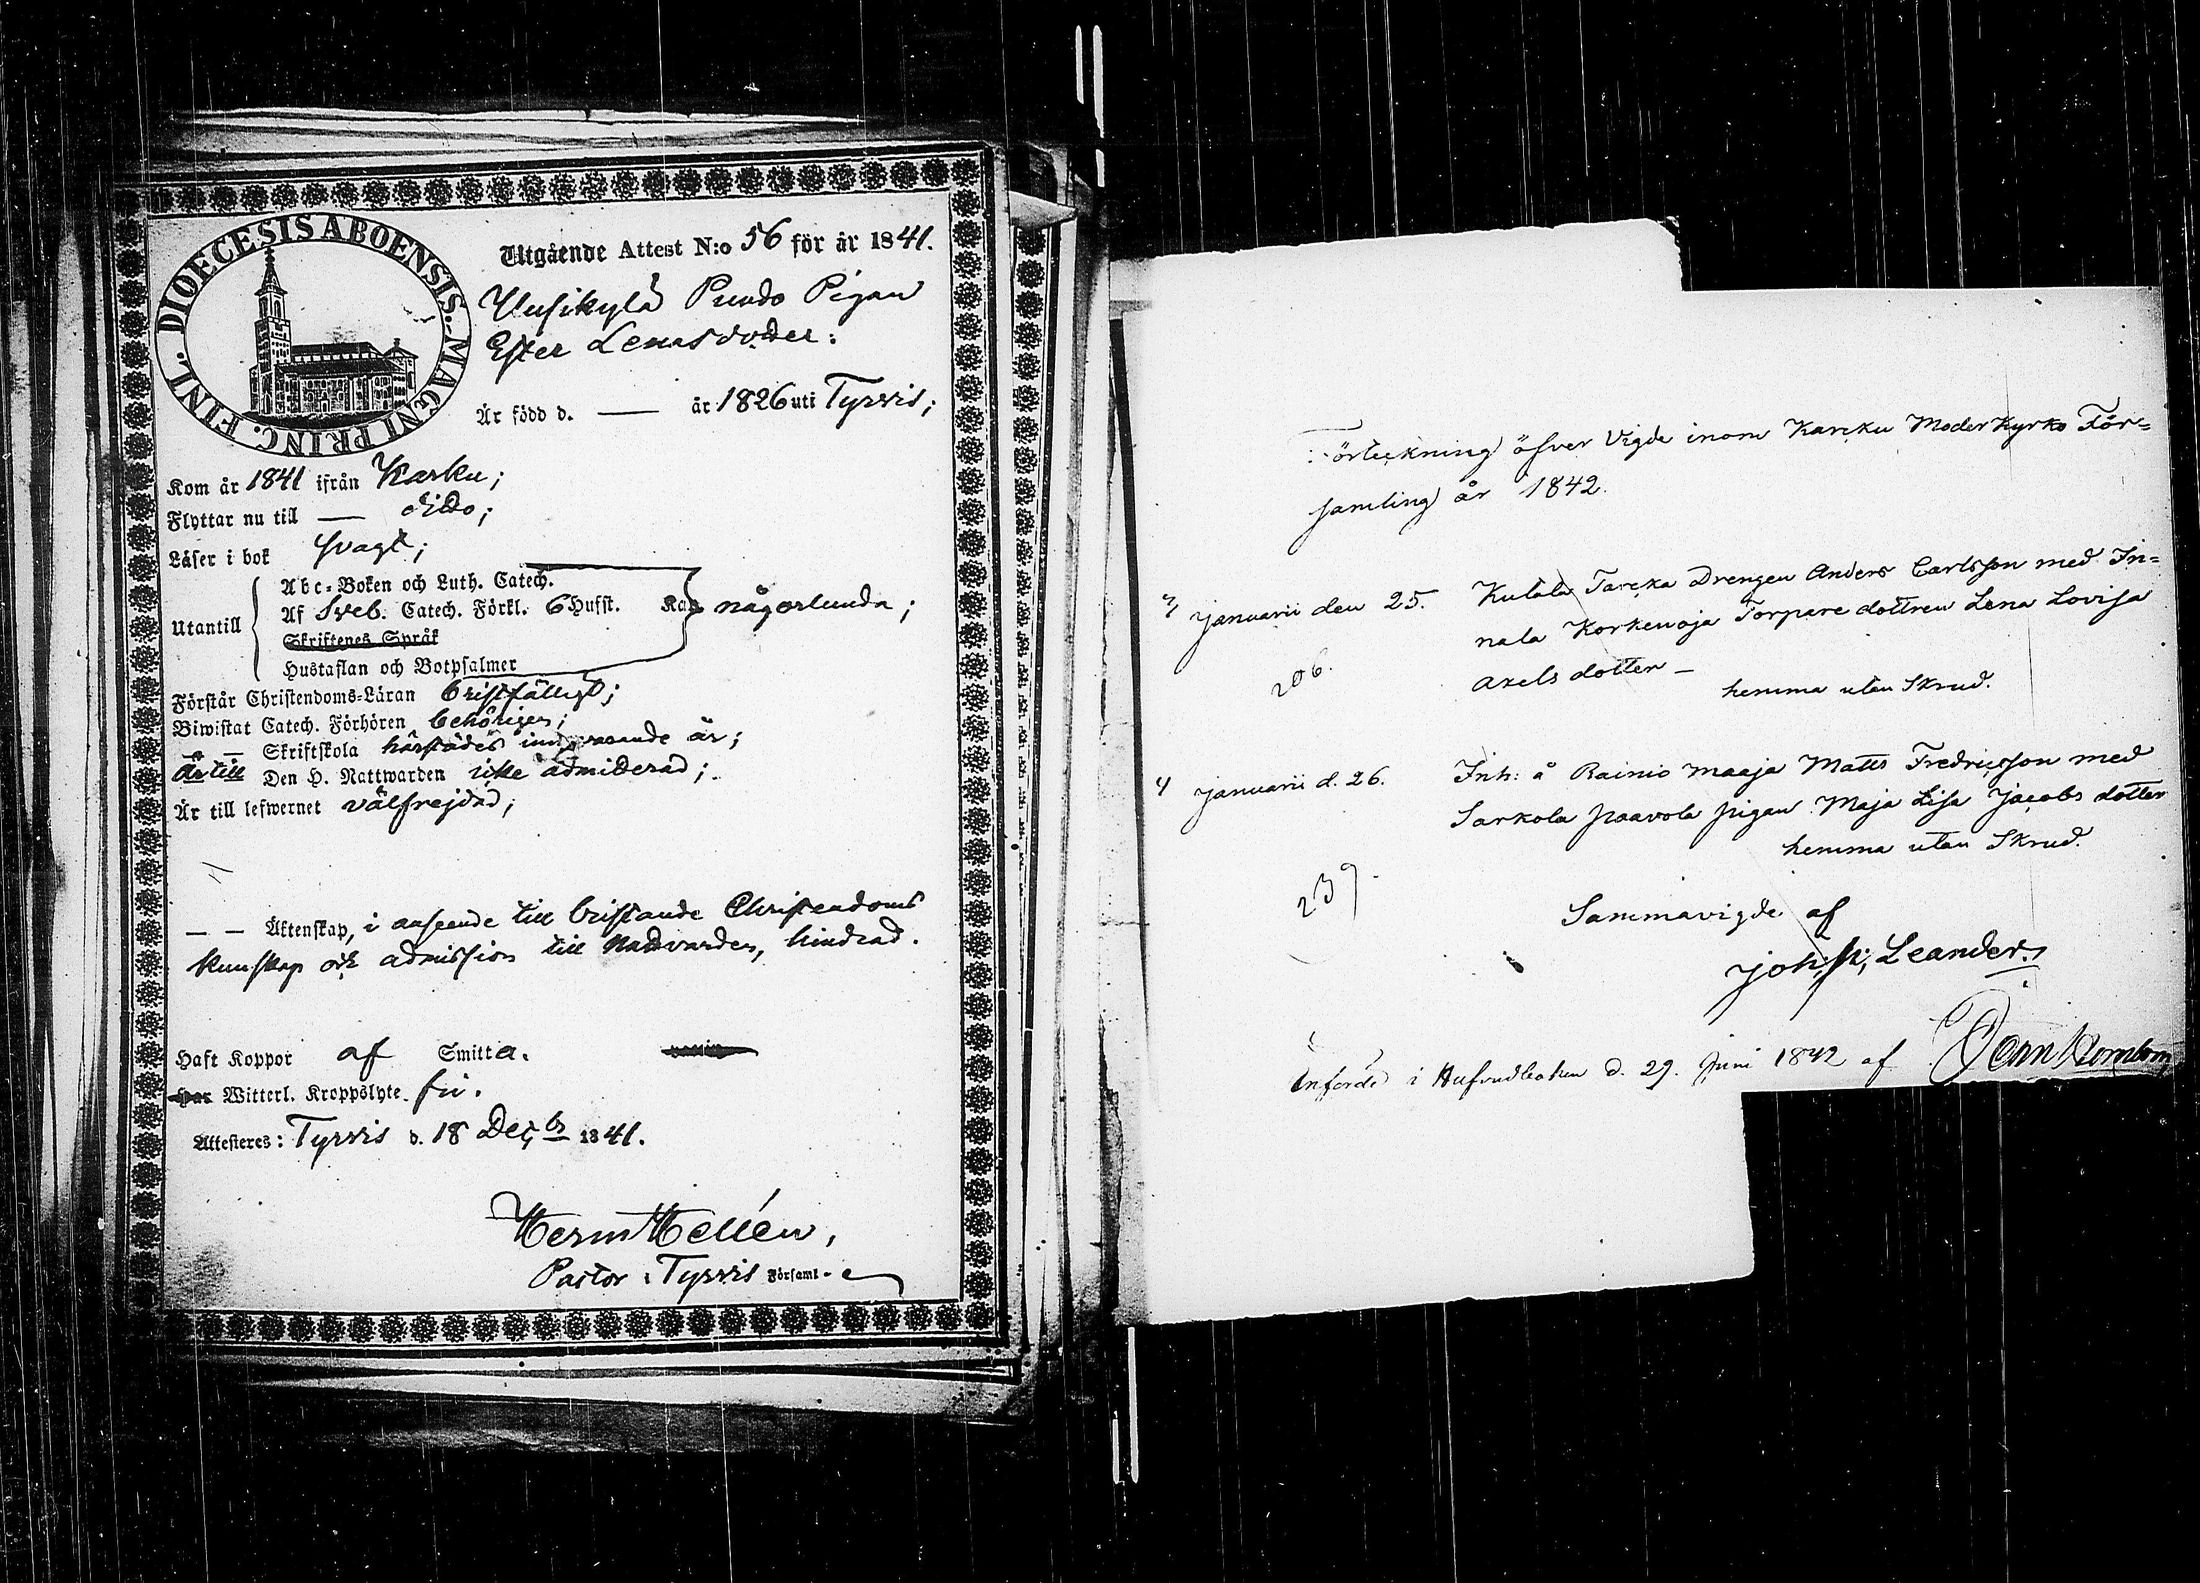 DIOECESIS ABOENSIS. MAGNI PRINC. FINL.
Utgående Attest N:o 56 för år 1841.
Uusikylä Pundo Pigan
Ester Lenasdoder:
Är född d. — år 1826 uti Tyrvis;
Kom år 1841 ifrån Karku;
Flyttar nu till — dito;
Läser i bok svagt;
Utantill
Abc-Boken och Luth. Catech.
Af Sveb. Catech. Förkl. 6 Hufst. Kan någorlunda;
Skriftenes Språk
Hustaflan och Botpsalmer
Förstår Christendoms-Läran bristfälligt;
Biwistat Catech. Förhören behörigen;
— — Skriftskola härstädes innevarande år;
Är till Den H. Nattwarden icke admitterad;
Är till lefwernet välfrejdad;
— — Äktenskap, i anseende till bristande Christendoms
kunskap och admission till Nattvarden, hindrad.
Haft Koppor af Smitta.
Har Witterl. Kroppslyte fri.
Attesteres: Tyrvis d. 18 Dec;br 1841.
Herm Hellén,
Pastor i Tyrvis Församl-e
Förteckning öfver Vigde inom Karcku Moder Kyrko För=
samling år 1842.
Januarii den 25. Kutala Tarcka Drengen Anders Carlsson med In=
nala Korkenoja Torpare dottren Lena Lovisa
206. Axels dotter —
hemma utan Skrud.
Januarii d. 26. Inh: å Rainio Maaja Matts Fredricsson med
Sarkola Paavola pigan Maja Lisa Jacobs dotter
hemma utan Skrud.
239.
Sammavigde af
Joh: Leander
Införde i Hufvudboken d. 29. Juni 1842 af